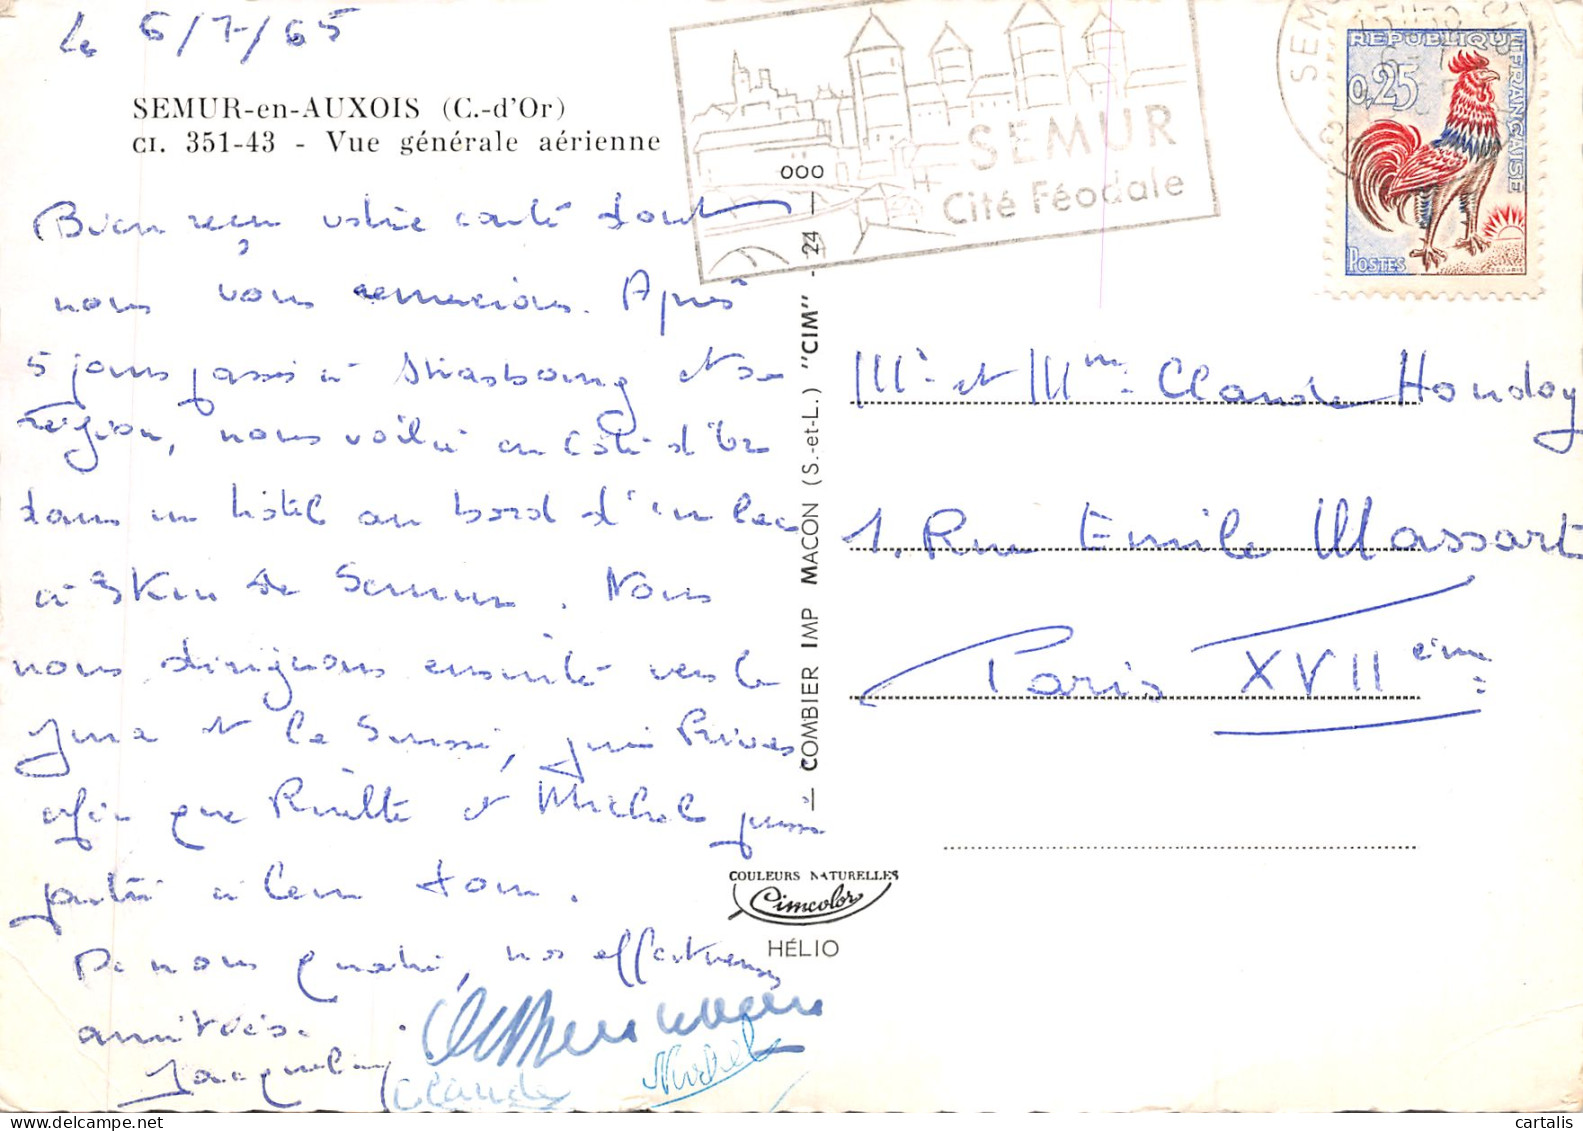 le 6/7/65
SEMUR-en-AUXOIS (C.-d'Or)
CI. 351-43 - Vue générale aérienne
Bien reçu votre carte dont
nous vous remercions. Après
5 jours passés à Strasbourg et sa
région, nous voilà en Côte d'Or
dans un hôtel au bord d'un lac
à 3 Km de Semur. Nous
nous dirigeons ensuite vers le
Jura et la Suisse, puis
afin que et Michel puisse
partir à leur tour.
De nous quatre, nos affectueuses
amitiés.
Jacqueline
Claude
Michel
SEMUR
Cité Féodale
SEMUR
RÉPUBLIQUE FRANÇAISE
0,25
POSTES
DECARIS
ooo
24 — COMBIER IMP MACON (S.-et-L.) "CIM"
Mr. et Mme. Claude Houdoy
1. Rue Emile Massart
Paris XVIIème
COULEURS NATURELLES
Cimcolor
HÉLIO
cartalis